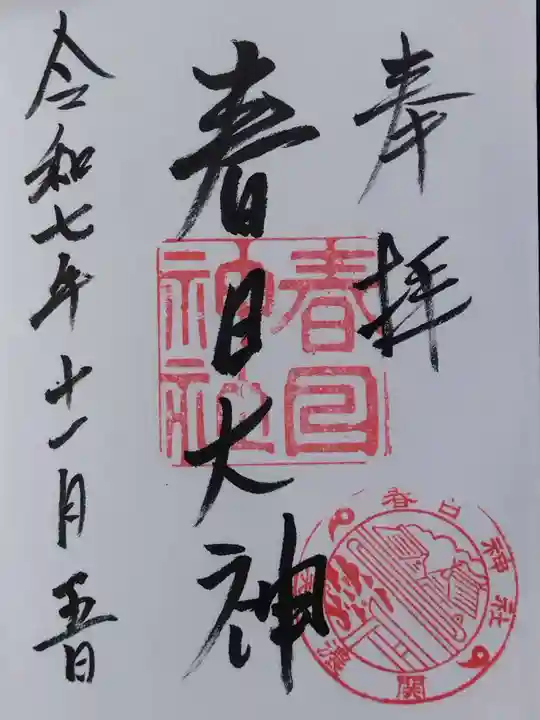 奉拝
春日大神
令和七年十一月五日
春日
神社
春日神社
美濃
関